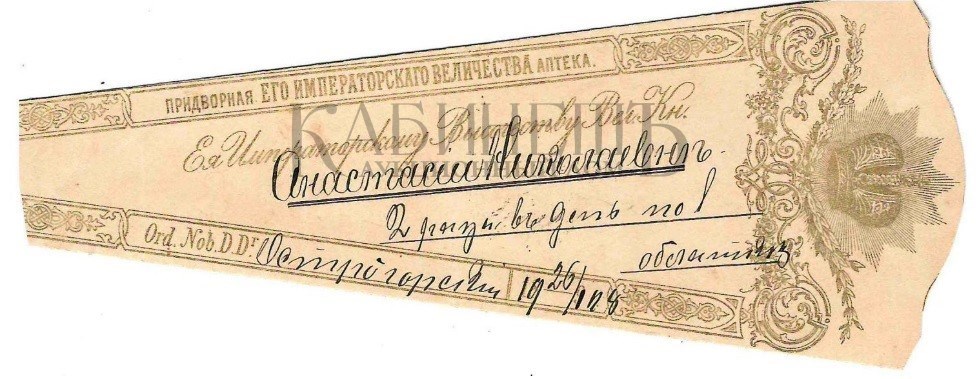 ПРИДВОРНАЯ ЕГО ИМПЕРАТОРСКАГО ВЕЛИЧЕСТВА АПТЕКА.
Ея Императорскому Высочеству Вел. Кн.
КАБИНЕТЪ
Анастасии Николаевнѣ.
2 раза въ день по 1
облатки
Ord. Nob. D. Dr. Острогорский 1926/II8